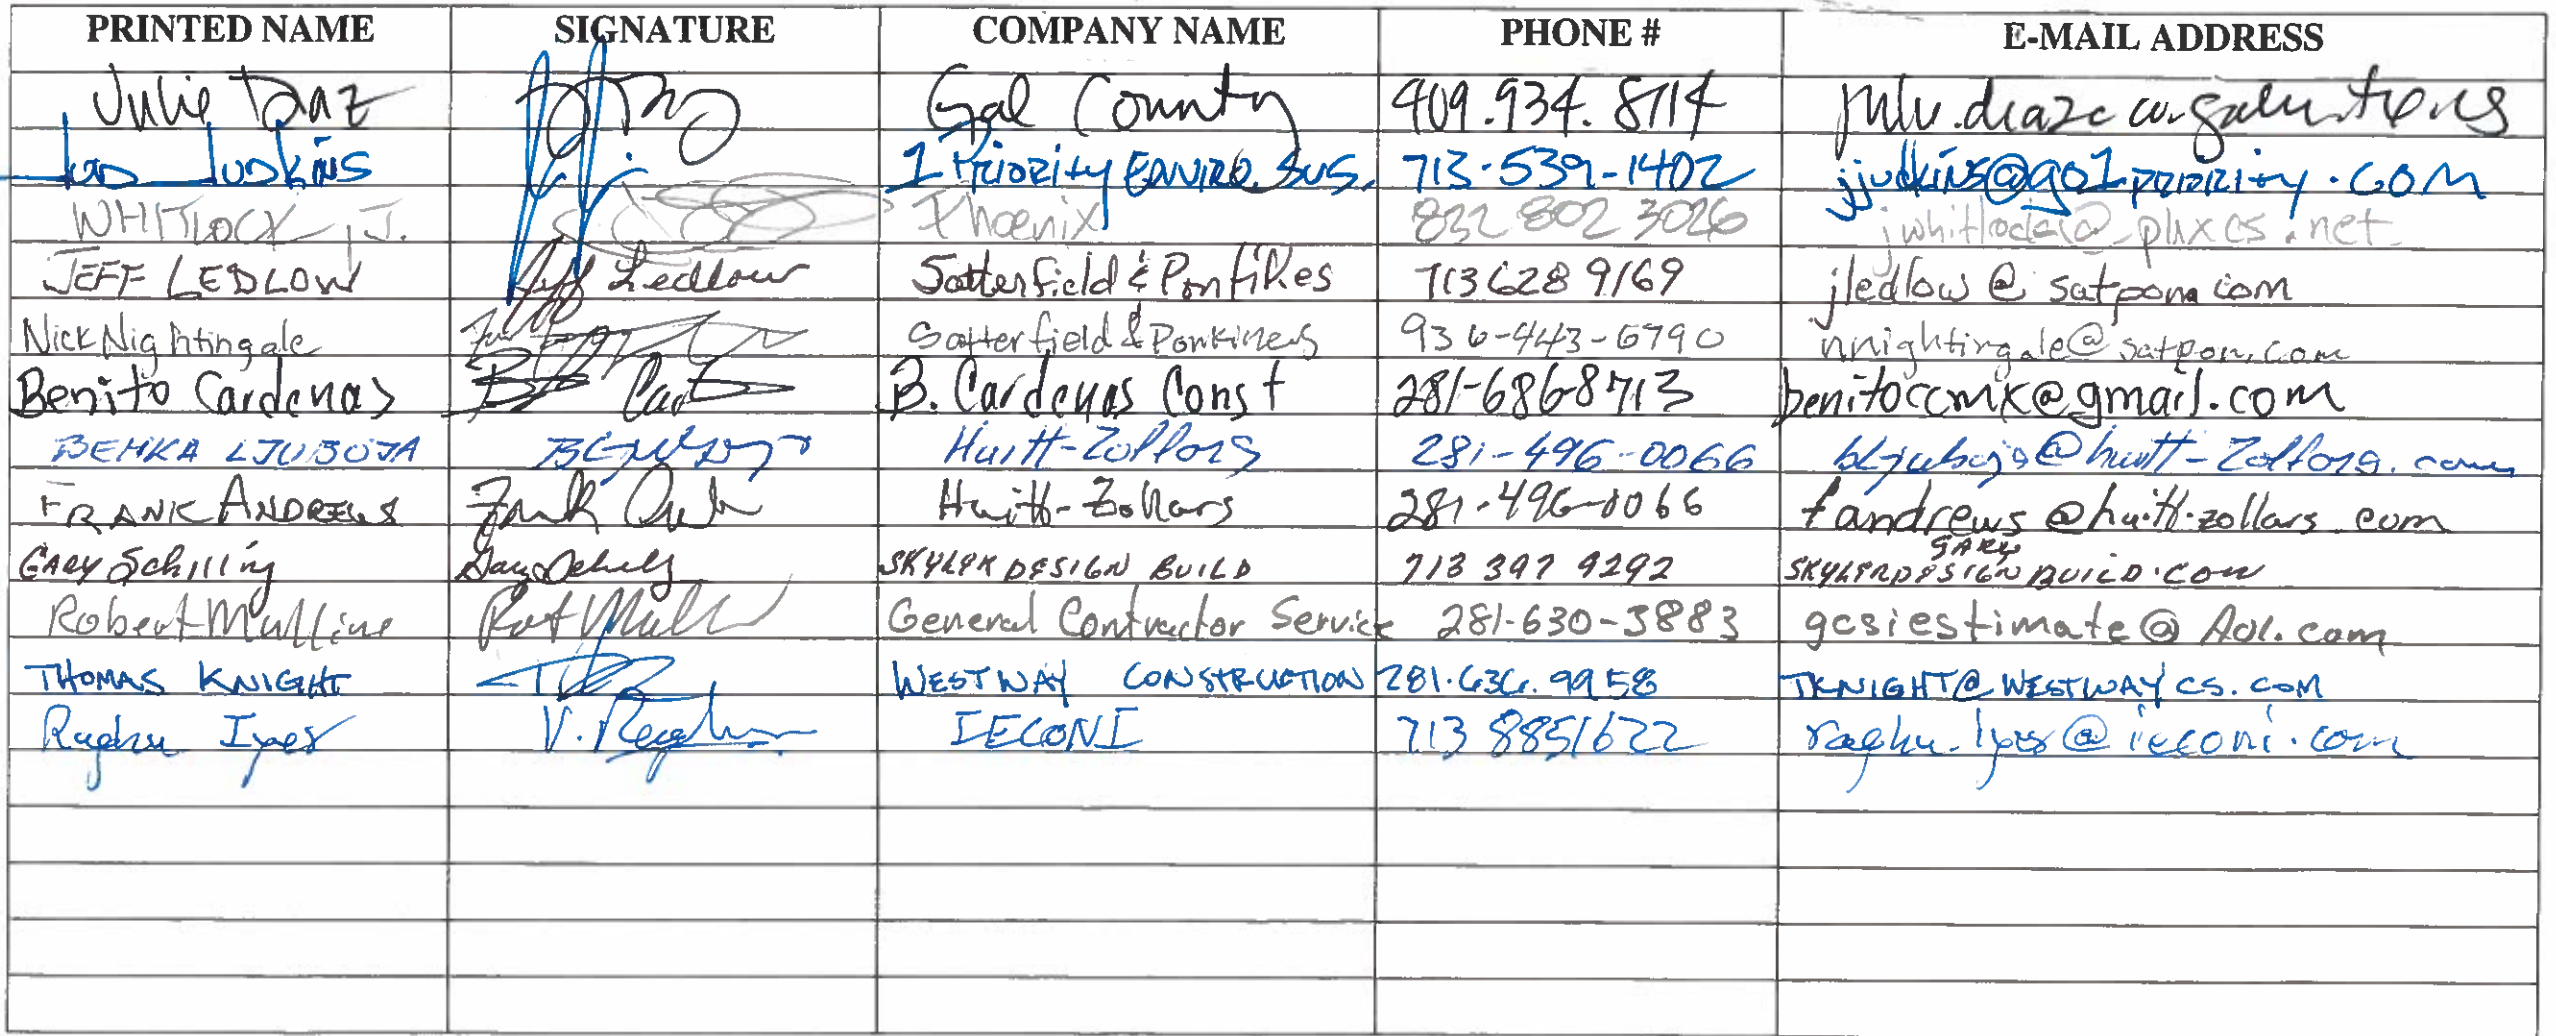 PRINTED NAME SIGNATURE COMPANY NAME PHONE # E-MAIL ADDRESS
Julie Diaz Gal County 409.934.8114
Judkins 1 Priority Enviro. Svs. 713-539-1402 jjudkins@go1priority.com
WHITLOCK, J. Phoenix 832 802 3026 jwhitlock@phxcs.net
JEFF LEDLOW Jeff Ledlow Satterfield & Pontikes 713 628 9169 jledlow@satpon.com
Nick Nightingale Satterfield & Pontikes 936-443-6790 nnightingale@satpon.com
Benito Cardenas B. Cardenas Const 281-686-8713 benitoccmx@gmail.com
BEHKA LJUBOJA Huitt-Zollars 281-496-0066 bljuboja@huitt-zollars.com
FRANK ANDREWS Huitt-Zollars 281-496-0066 fandrews@huitt-zollars.com
GARY
GARY Schilling SKYLER DESIGN BUILD 713 397 9292 SKYLERDESIGNBUILD.COM
Robert Mulline General Contractor Service 281-630-3883 gcsiestimate@Aol.com
THOMAS KNIGHT WESTWAY CONSTRUCTION 281.636.9958 TKNIGHT@WESTWAYCS.COM
Raghu Iyer V. Raghu IECONI 713 8851622 raghu.iyer@ieconi.com